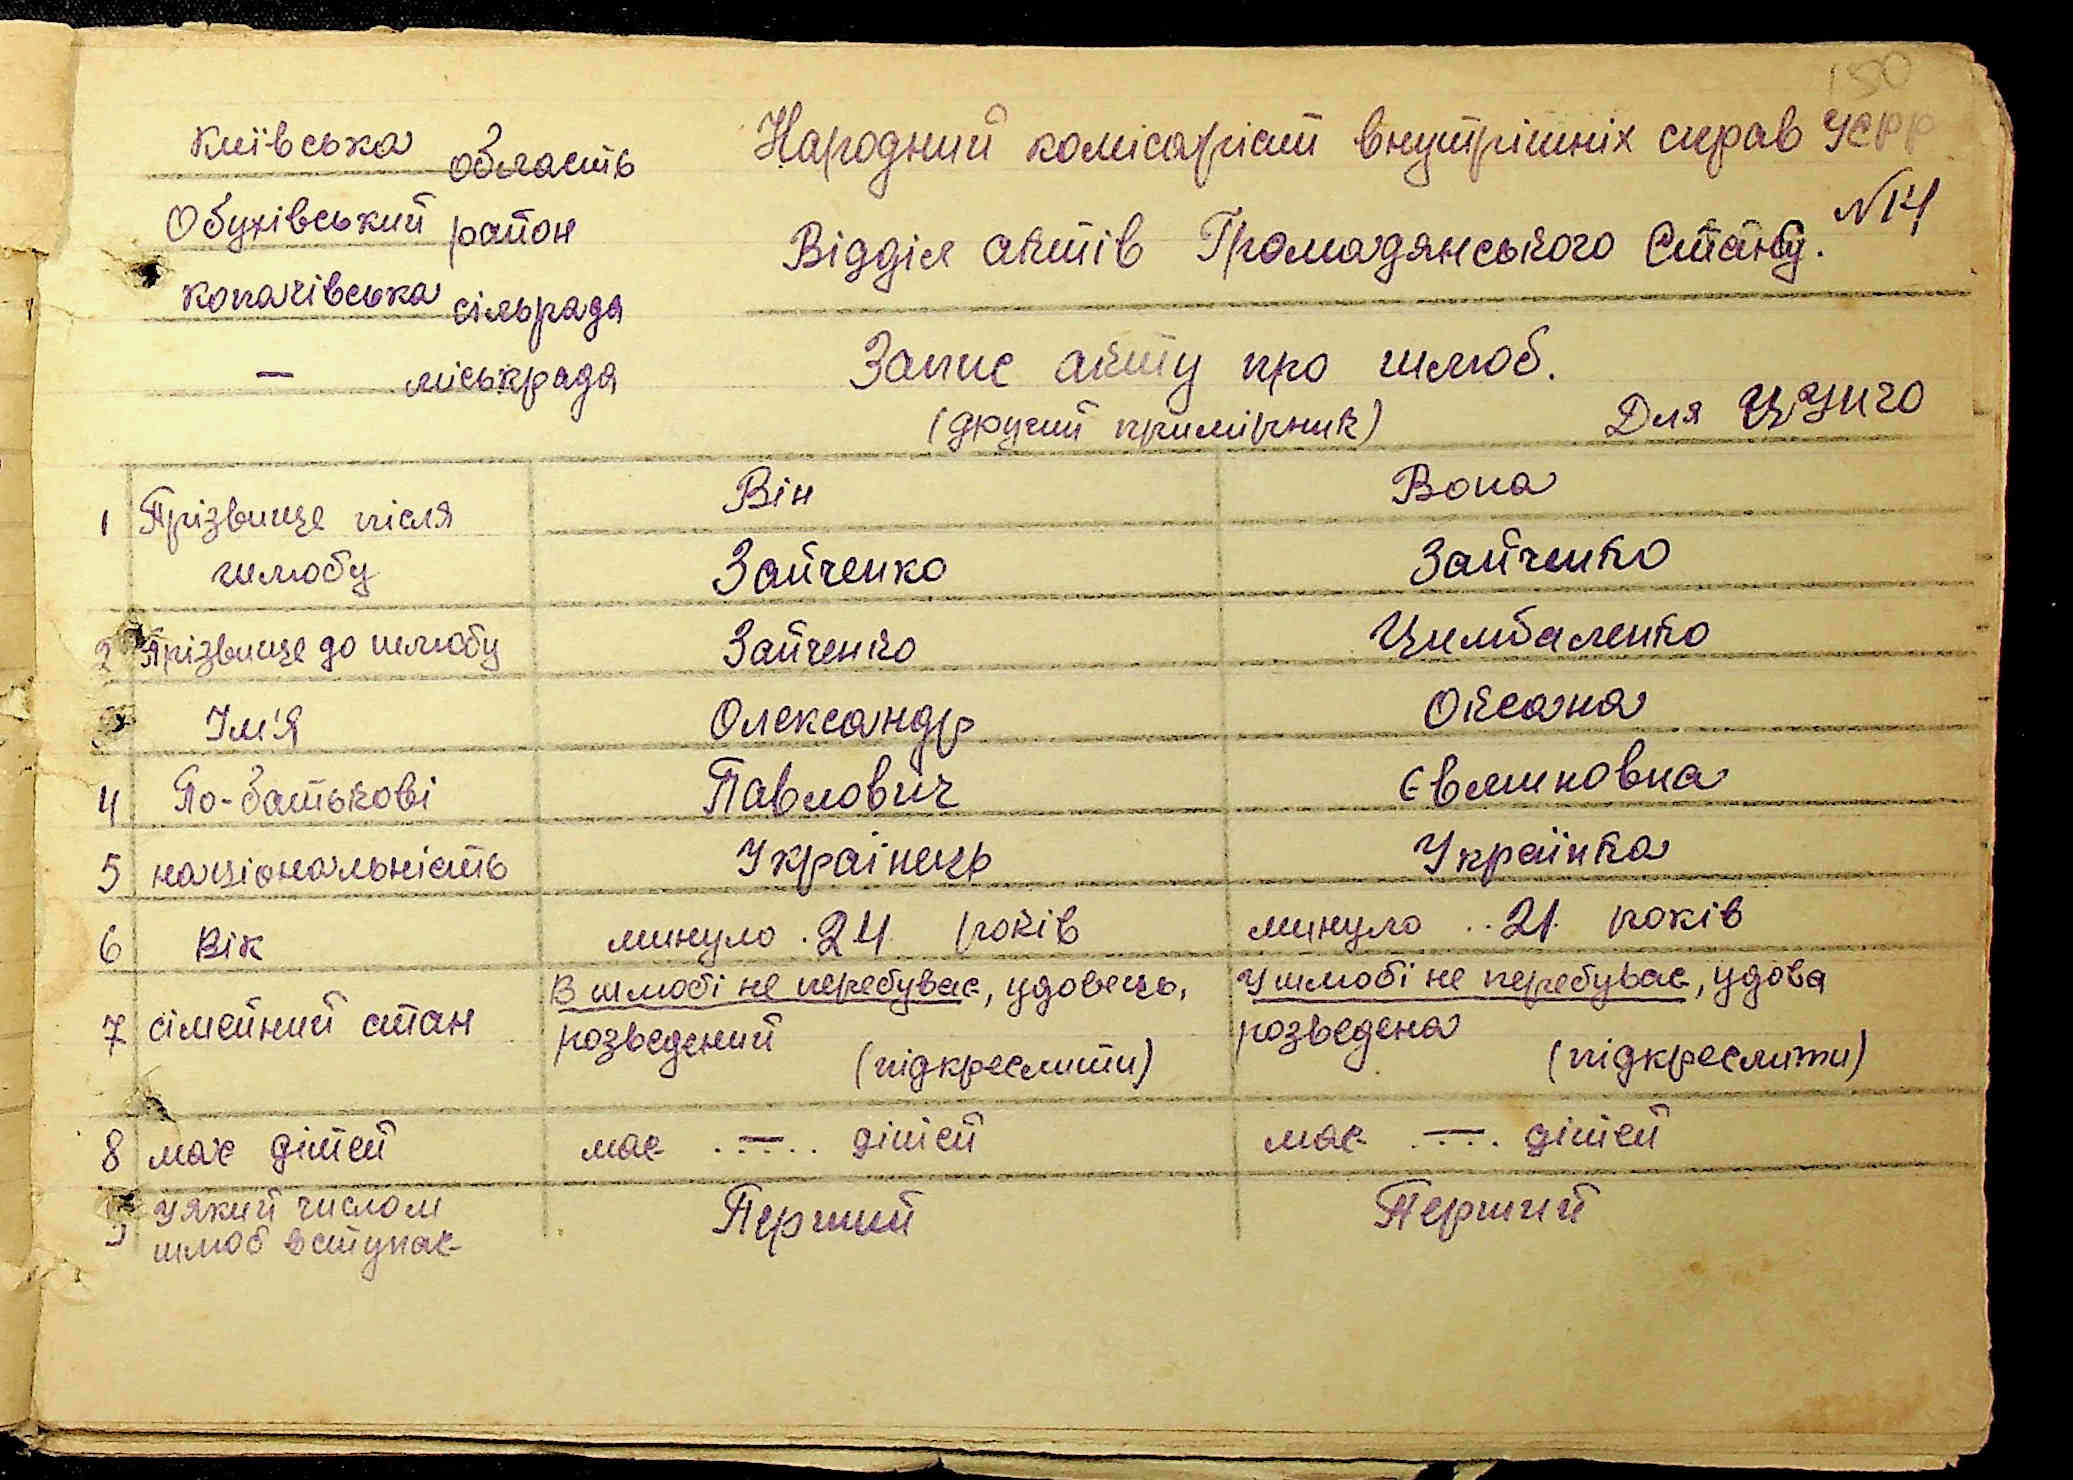 150
Київська область
Народний комісаріат внутрішніх справ УСРР
Обухівський район
Відділ актів Громадянського Стану. №14
Копачівська сільрада
— міськрада
Запис акту про шлюб.
(другий примірник)
Для ЦУНГО
Він
Вона
1 Прізвище після шлюбу
Зайченко
Зайченко
2 Прізвище до шлюбу
Зайченко
Цимбаленко
Ім'я
Олександр
Оксана
4 По-батькові
Павлович
Євминовна
5 національність
Українець
Українка
6 Вік
минуло .24. років
минуло ..21. років
7 сімейний стан
В шлюбі не перебуває, удовець,
розведений
(підкреслити)
У шлюбі не перебуває, удова
розведена
(підкреслити)
8 має дітей
має ..—.. дітей
має ..—.. дітей
9 у який числом
шлюб вступає
Перший
Перший